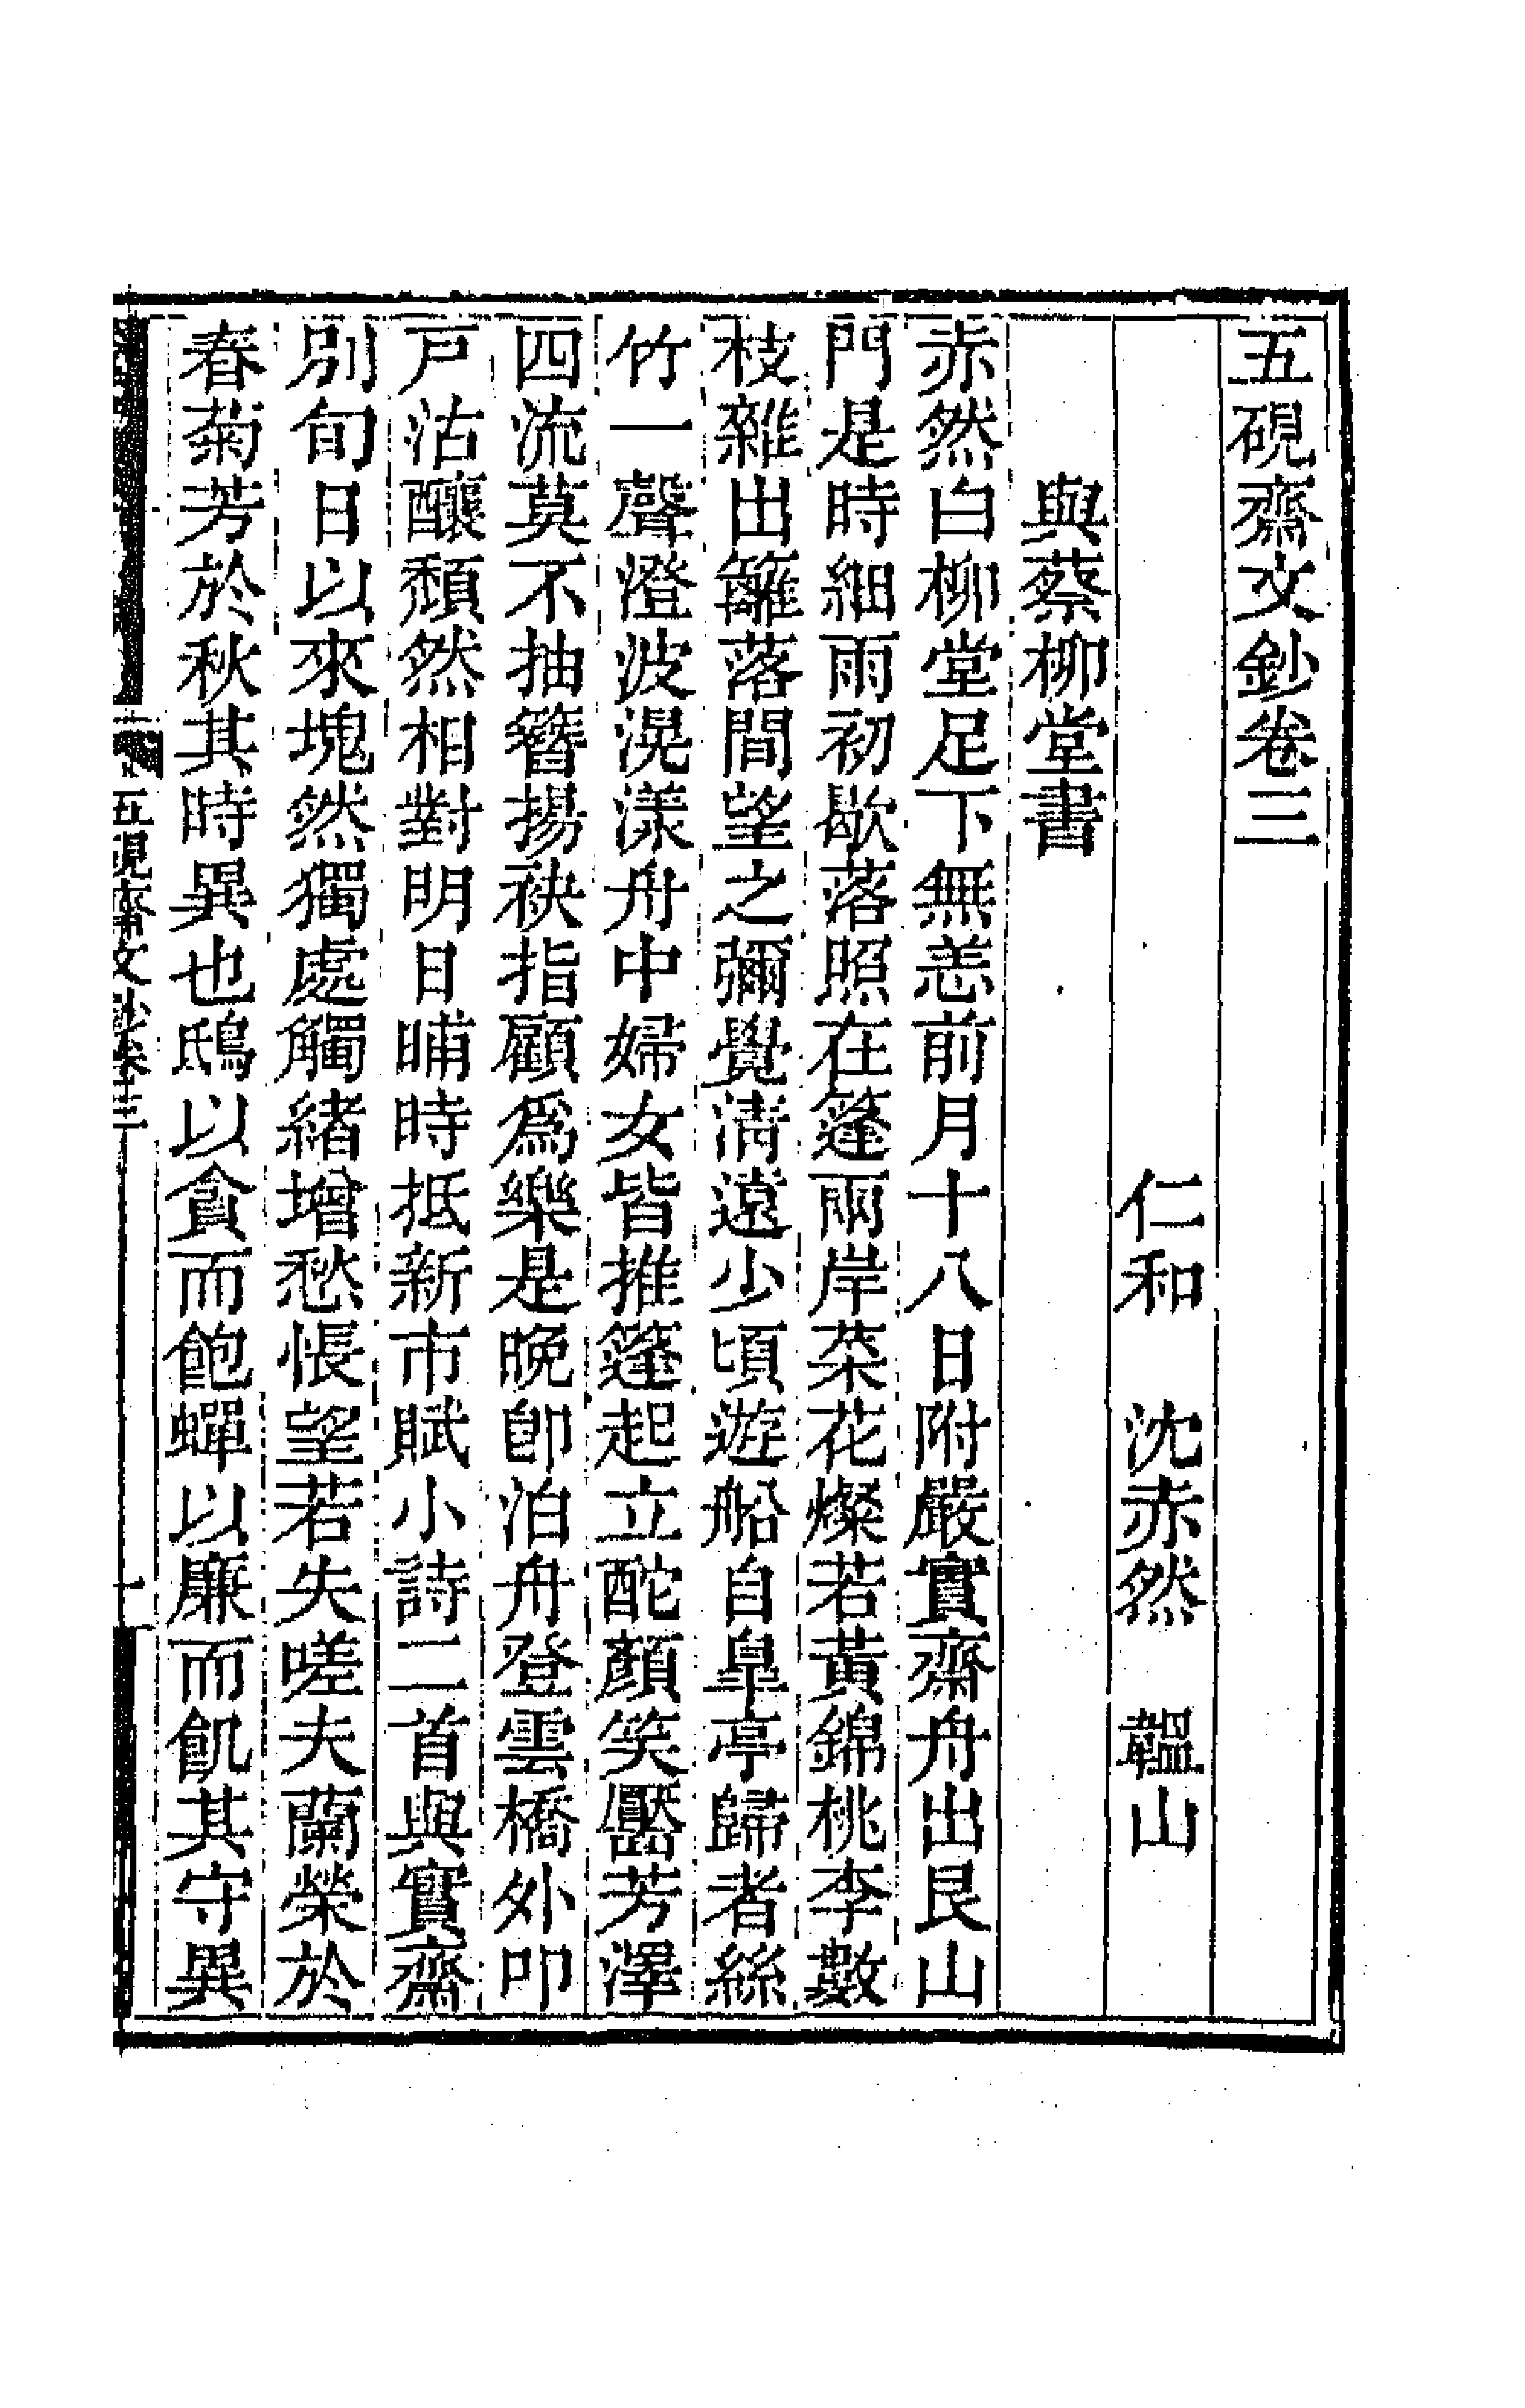 五硯齋文鈔卷三
仁和　沈赤然　韞山
與蔡柳堂書
赤然白柳堂足下無恙前月十八日附嚴實齋舟出艮山
門是時細雨初歇落照在篷兩岸菜花燦若黃錦桃李數
枝雜出籬落間望之彌覺清遠少頃遊船自皐亭歸者絲
竹一聲澄波滉漾舟中婦女皆推篷起立酡顏笑靨芳澤
四流莫不抽簪揚袂指顧爲樂是晚卽泊舟登雲橋外叩
戸沽釀頽然相對明日晡時抵新市賦小詩二首與實齋
別旬日以來塊然獨處觸緒增愁悵望若失嗟夫蘭榮於
春菊芳於秋其時異也鴟以貪而飽蟬以廉而飢其守異
五硯齋文鈔卷三
一